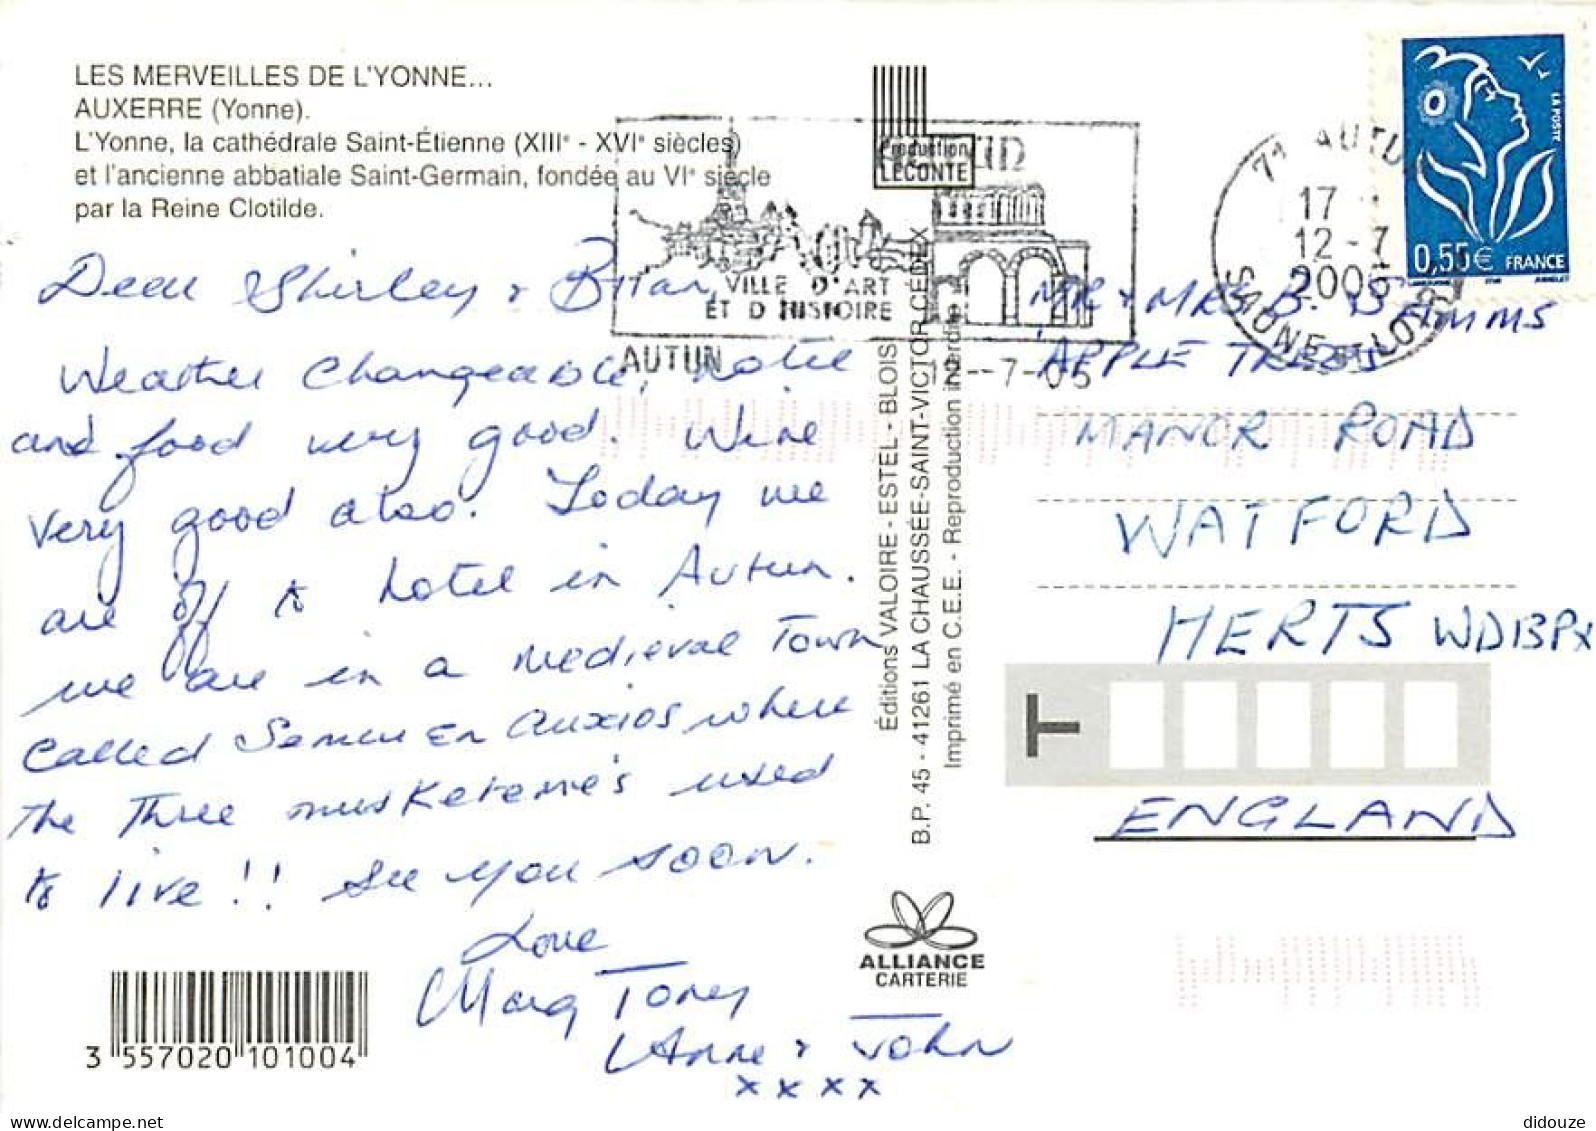 LES MERVEILLES DE L'YONNE...
AUXERRE (Yonne).
L'Yonne, la cathédrale Saint-Étienne (XIIIe - XVIe siècles)
et l'ancienne abbatiale Saint-Germain, fondée au VIe siècle
par la Reine Clotilde.
Dear Shirley & Brian,
Weather Changeable, hotel
and food very good. Wine
very good also. Today we
are off to hotel in Autun.
we are in a medieval Town
called Semur En Auxios where
the Three musketeere's used
to live!! See you soon.
Love
Marg Toney
Anne & John
x x x x
3 557020 101004
Production
LECONTE
VILLE D'ART
ET D HISTOIRE
AUTUN
12-7-05
Éditions VALOIRE - ESTEL - BLOIS
B.P. 45 - 41261 LA CHAUSSÉE-SAINT-VICTOR CEDEX
Imprimé en C.E.E. - Reproduction interdite
ALLIANCE
CARTERIE
71 AUTUN
17
12 - 7
2005
SAONE ET LOIRE
LA POSTE
0,55€ FRANCE
MR & MRS B. TIMMS
APPLE TREES
MANOR ROAD
WATFORD
HERTS WD13PX
T
ENGLAND
didouze